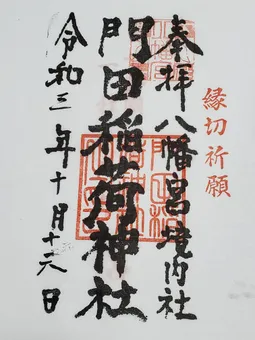 縁切祈願
奉拝 八幡宮境内社
門田稲荷神社
令和三年十月十六日